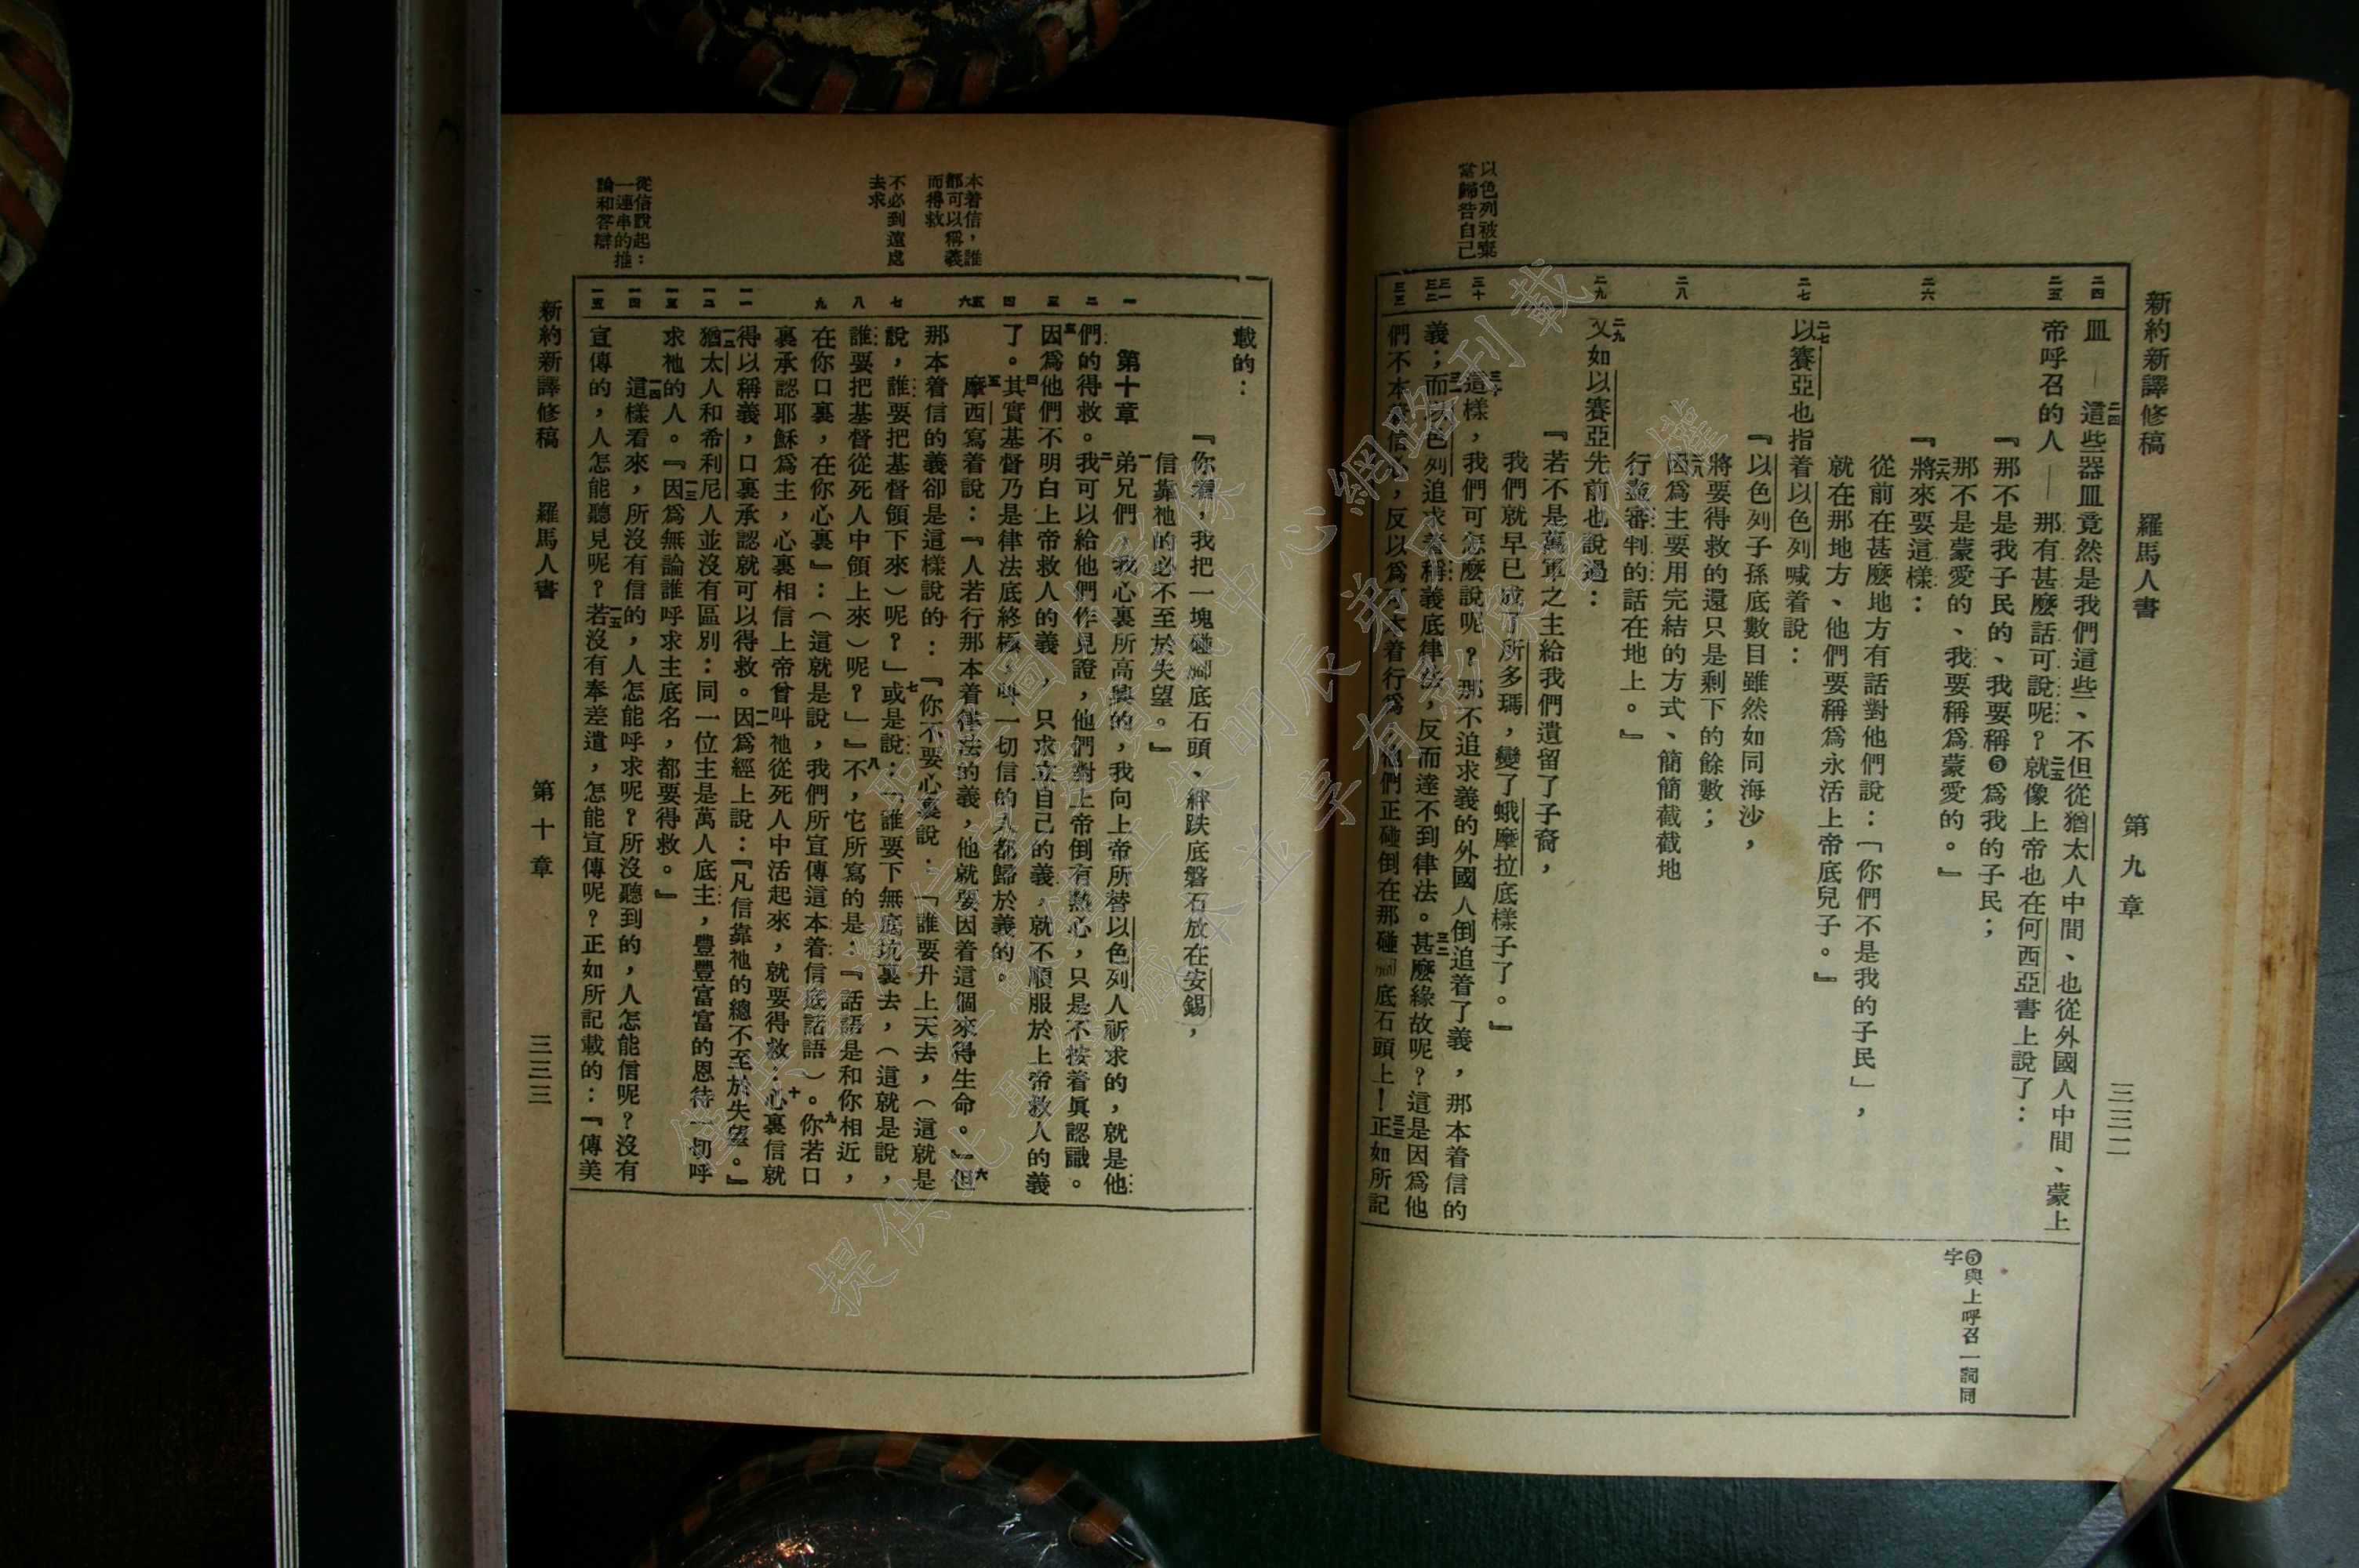 新約新譯修稿　羅馬人書　第九章　三三二
以色列被棄
當歸咎自己
二四
二五
二六
二七
二八
二九
三十
三一
三二
三三
皿——二四這些器皿竟然是我們這些、不但從猶太人中間、也從外國人中間、蒙上
帝呼召的人——那有甚麼話可說呢？二五就像上帝也在何西亞書上說了：
『那不是我子民的、我要稱❺為我的子民；
那不是蒙愛的、我要稱爲蒙愛的。』
二六『將來要這樣：
從前在甚麼地方有話對他們說：「你們不是我的子民」，
就在那地方、他們要稱爲永活上帝底兒子。』
二七以賽亞也指着以色列喊着說：
『以色列子孫底數目雖然如同海沙，
將要得救的還只是剩下的餘數；
二八因爲主要用完結的方式、簡簡截截地
行並審判的話在地上。』
二九又如以賽亞先前也說過：
『若不是萬軍之主給我們遺留了子裔，
我們就早已成了所多瑪，變了蛾摩拉底樣子了。』
三十這樣，我們可怎麼說呢？那不追求義的外國人倒追着了義，那本着信的
義；三一而以色列追求着稱義底律法，反而達不到律法。三二甚麼緣故呢？這是因爲他
們不本着信心，反以爲可本着行爲；他們正碰倒在那碰腳底石頭上！三三正如所記
❺與上呼召一詞同
字
載的：
『你看，我把一塊碰腳底石頭、絆跌底磐石放在安錫，
信靠祂的必不至於失望。』
第十章　一弟兄們，我心裏所高興的，我向上帝所替以色列人祈求的，就是他
們的得救。二我可以給他們作見證，他們對上帝倒有熱心，只是不按着眞認識。
三因爲他們不明白上帝救人的義，只求立自己的義，就不順服於上帝救人的義
了。四其實基督乃是律法底終極，叫一切信的人都歸於義的。
五摩西寫着說：『人若行那本着律法的義，他就要因着這個來得生命。』六但
那本着信的義卻是這樣說的：『你不要心裏說：「誰要升上天去，（這就是
說，誰要把基督領下來）呢？」七或是說：「誰要下無底坑裏去，（這就是說，
誰要把基督從死人中領上來）呢？」』八不，它所寫的是：『話語是和你相近，
在你口裏，在你心裏』：（這就是說，我們所宣傳這本着信底話語）。九你若口
裏承認耶穌爲主，心裏相信上帝曾叫祂從死人中活起來，就要得救；十心裏信就
得以稱義，口裏承認就可以得救。一一因爲經上說：『凡信靠祂的總不至於失望。』
一二猶太人和希利尼人並沒有區別：同一位主是萬人底主，豐豐富富的恩待一切呼
求祂的人。『一三因爲無論誰呼求主底名，都要得救。』
一四這樣看來，所沒有信的，人怎能呼求呢？所沒聽到的，人怎能信呢？沒有
宣傳的，人怎能聽見呢？一五若沒有奉差遣，怎能宣傳呢？正如所記載的：『傳美
一
二
三
四
五
六
七
八
九
一一
一二
一三
一四
一五
本着信，誰
都可以稱義
而得救
不必到遠處
去求
從信說起：
一連串的推
論和答辯
新約新譯修稿　羅馬人書　第十章　三三三